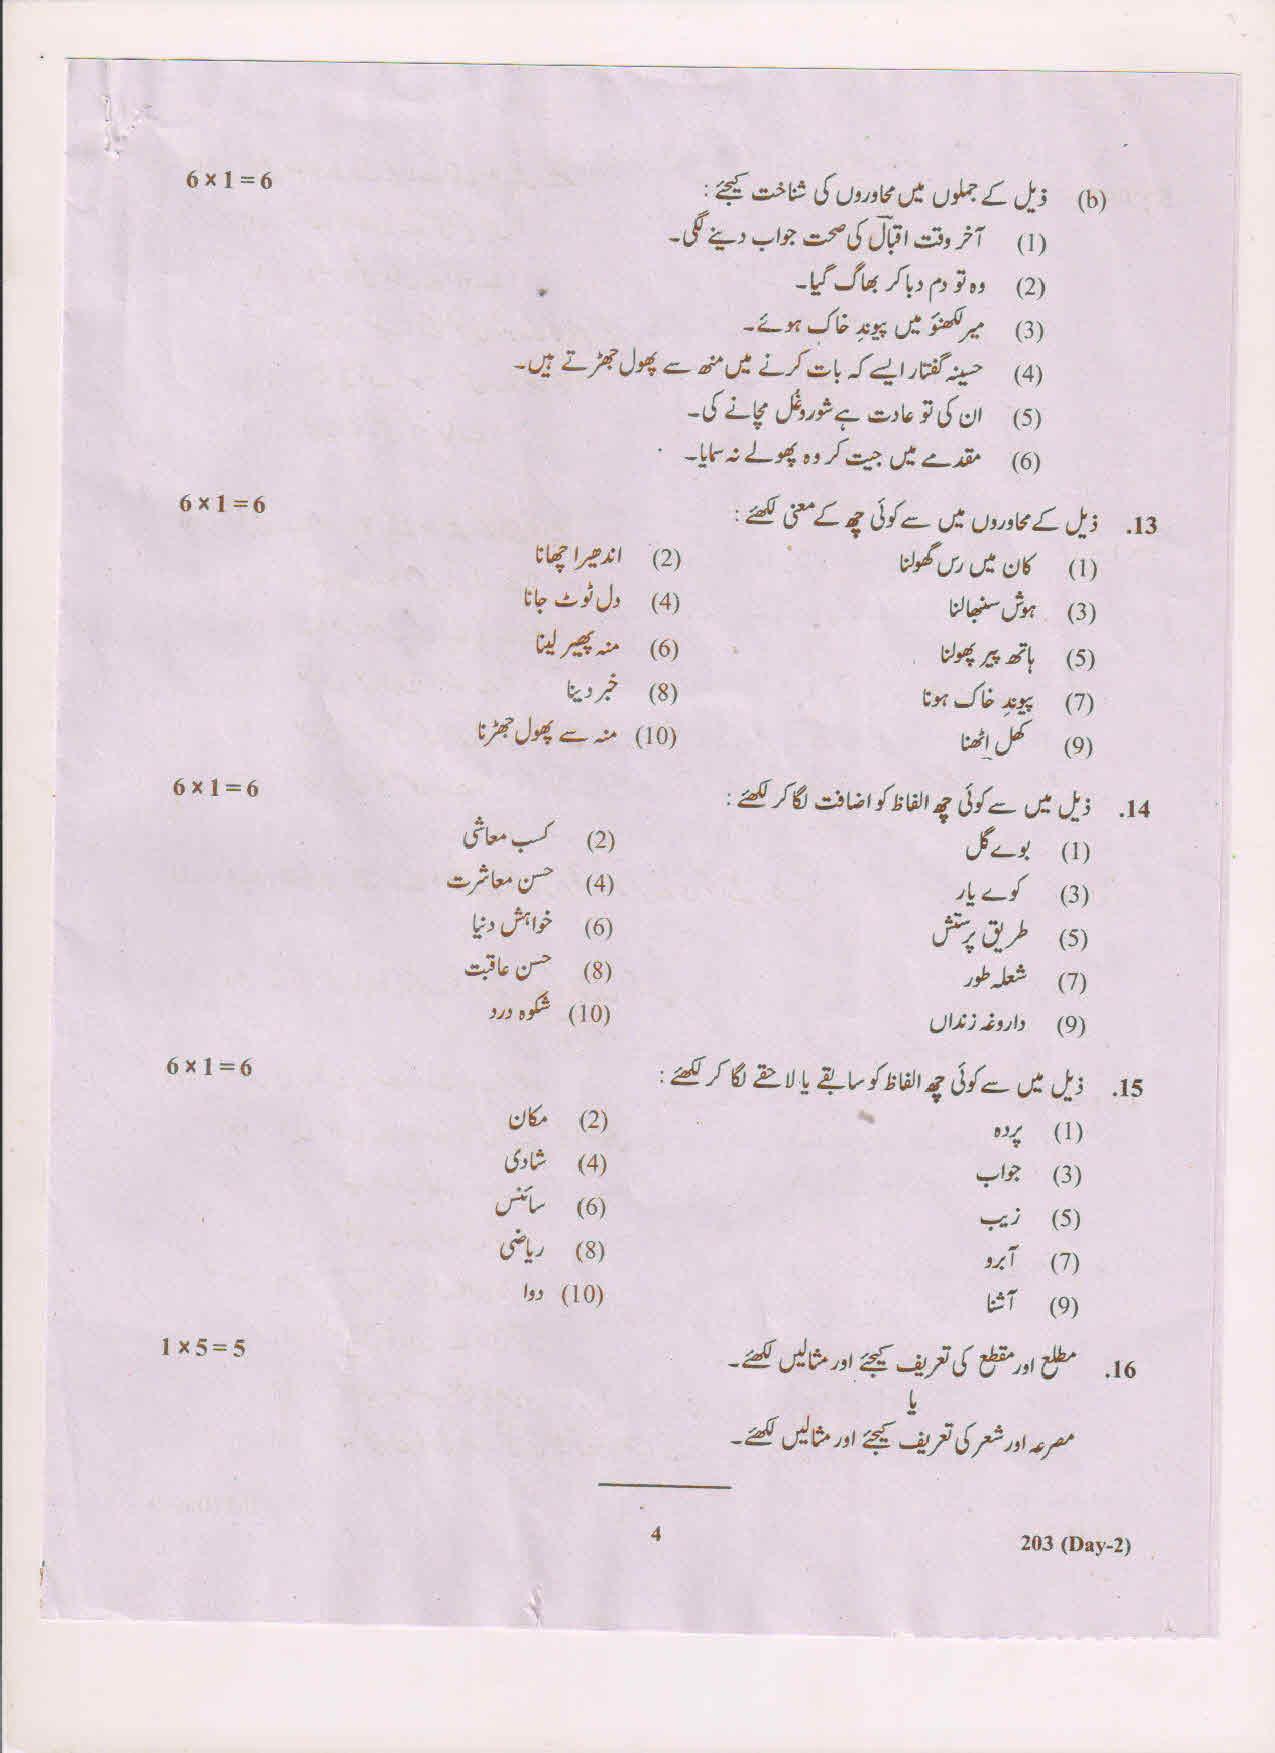 (b) ذیل کے جملوں میں محاوروں کی شناخت کیجئے : 6 × 1 = 6
(1) آخر وقت اقبالؔ کی صحت جواب دینے لگی۔
(2) وہ تو دم دبا کر بھاگ گیا۔
(3) میر لکھنؤ میں پیوندِ خاک ہوئے۔
(4) حسینہ گفتار ایسے کہ بات کرنے میں منھ سے پھول جھڑتے ہیں۔
(5) ان کی تو عادت ہے شور و غُل مچانے کی۔
(6) مقدمے میں جیت کر وہ پھولے نہ سمایا۔
13. ذیل کے محاوروں میں سے کوئی چھ کے معنی لکھئے : 6 × 1 = 6
(1) کان میں رس گھولنا (2) اندھیرا چھانا
(3) ہوش سنبھالنا (4) دل ٹوٹ جانا
(5) ہاتھ پیر پھولنا (6) منہ پھیر لینا
(7) پیوندِ خاک ہونا (8) خبر دینا
(9) کھل اٹھنا (10) منہ سے پھول جھڑنا
14. ذیل میں سے کوئی چھ الفاظ کو اضافت لگا کر لکھئے : 6 × 1 = 6
(1) بوے گل (2) کسب معاشی
(3) کوے یار (4) حسن معاشرت
(5) طریق پرستش (6) خواہش دنیا
(7) شعلہ طور (8) حسن عاقبت
(9) داروغہ زنداں (10) شکوہ درد
15. ذیل میں سے کوئی چھ الفاظ کو سابقے یا لاحقے لگا کر لکھئے : 6 × 1 = 6
(1) پردہ (2) مکان
(3) جواب (4) شادی
(5) زیب (6) سائنس
(7) آبرو (8) ریاضی
(9) آشنا (10) دوا
16. مطلع اور مقطع کی تعریف کیجئے اور مثالیں لکھئے۔ 1 × 5 = 5
یا
مصرعہ اور شعر کی تعریف کیجئے اور مثالیں لکھئے۔
4
203 (Day-2)